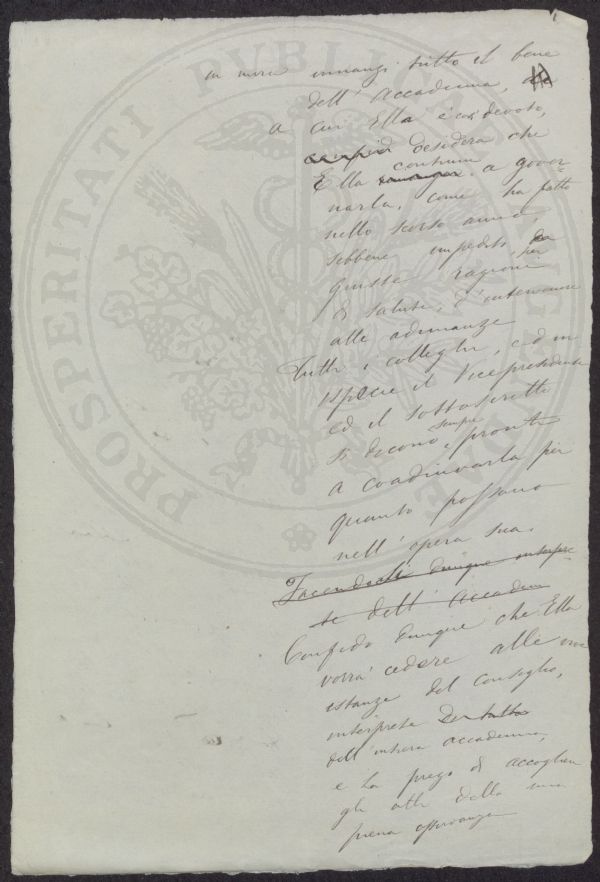 in mira innanzi tutto il bene
dell'Accademia,
a cui Ella è così devoto,
desidera che
Ella continui a gover-
narla, come ha fatto
nello scorso anno,
sebbene impedito, per
giuste ragioni
di salute, d'intervenire
alle adunanze
Tutti i colleghi, ed in
ispecie il Vicepresidente
ed il sottoscritto
si dicono sempre pronti
a coadiuvarla per
quanto possano
nell'opera sua.
Facendosi dunque interpre-
te dell'Accademia
Confido dunque che Ella
vorrà cedere alle vive
istanze del Consiglio,
interprete
dell'intera accademia,
e La prego di accogliere
gli atti della mia
piena osservanza
PROSPERITATI PVBLICAE AVGENDAE